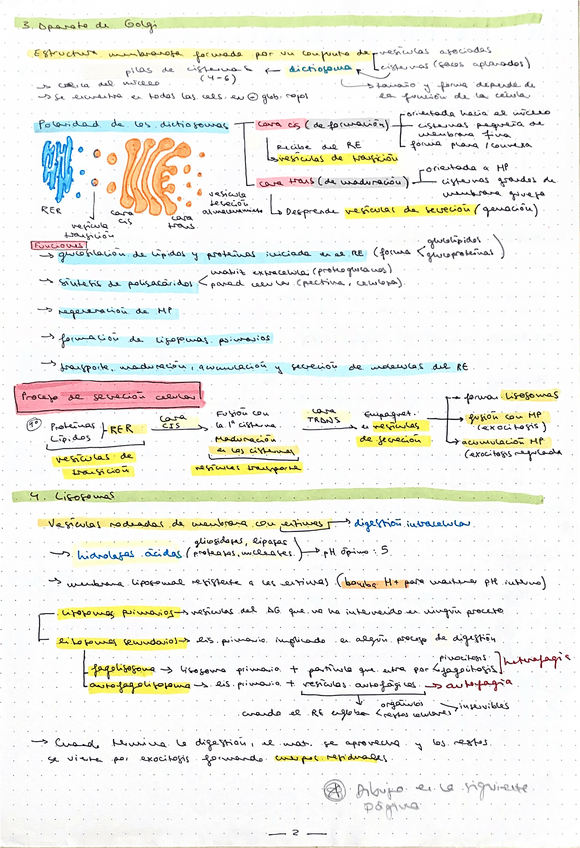 3. Aparato de Golgi
Estructura membranosa formada por un conjunto de vesículas asociadas
cisternas (sacos aplanados)
pilas de cisternas ← dictiosoma
(4-6)
→ cerca del núcleo
→ tamaño y forma depende de
la función de la célula
→ se encuentra en todas las cels. en ⊖ glob. rojos
Polaridad de los dictiosomas
cara cis (de formación)
orientada hacia el núcleo
cisternas pequeñas de
membrana fina
forma plana / convexa
Recibe del RE
vesículas de transición
cara trans (de maduración)
orientada a MP
cisternas grandes de
membrana gruesa
Desprende vesículas de secreción (gemación)
RER
vesícula
transición
cara
cis
cara
trans
vesícula
secreción
almacenamiento
Funciones
→ glucosilación de lípidos y proteínas iniciada en el RE (forma glucolípidos
glucoproteínas)
→ síntesis de polisacáridos
matriz extracelular (proteoglucanos)
pared celular (pectina, celulosa)
→ regeneración de MP
→ formación de lisosomas primarios
→ transporte, maduración, acumulación y secreción de moléculas del RE.
Proceso de secreción celular
Proteínas
Lípidos
RER
cara
CIS
Fusión con
la 1ª cisterna
Maduración
en las cisternas
cara
TRANS
Empaquet.
en vesículas
de secreción
→ forman lisosomas
→ fusión con MP
(exocitosis)
→ acumulación MP
(exocitosis regulada
vesículas de
transición
vesículas transporte
4. Lisosomas
Vesículas rodeadas de membrana con enzimas → digestión intracelular
→ hidrolasas ácidas (glucosidasas, lipasas
proteasas, nucleasas) → pH óptimo: 5
→ membrana lisosomal resistente a las enzimas (bomba H+ para mantener pH interno)
lisosomas primarios → vesículas del AG que no ha intervenido en ningún proceso
lisosomas secundarios → lis. primario implicado en algún proceso de digestión
fagolisosoma → lisosoma primario + partícula que entra por pinocitosis
fagocitosis
heterofagia
autofagolisosoma → lis. primario + vesículas autofágicas → autofagia
cuando el RE engloba orgánulos
restos celulares
inservibles
→ Cuando termina la digestión, el mat. se aprovecha y los restos
se vierte por exocitosis formando cuerpos residuales
Dibujo en la siguiente
página
— 2 —